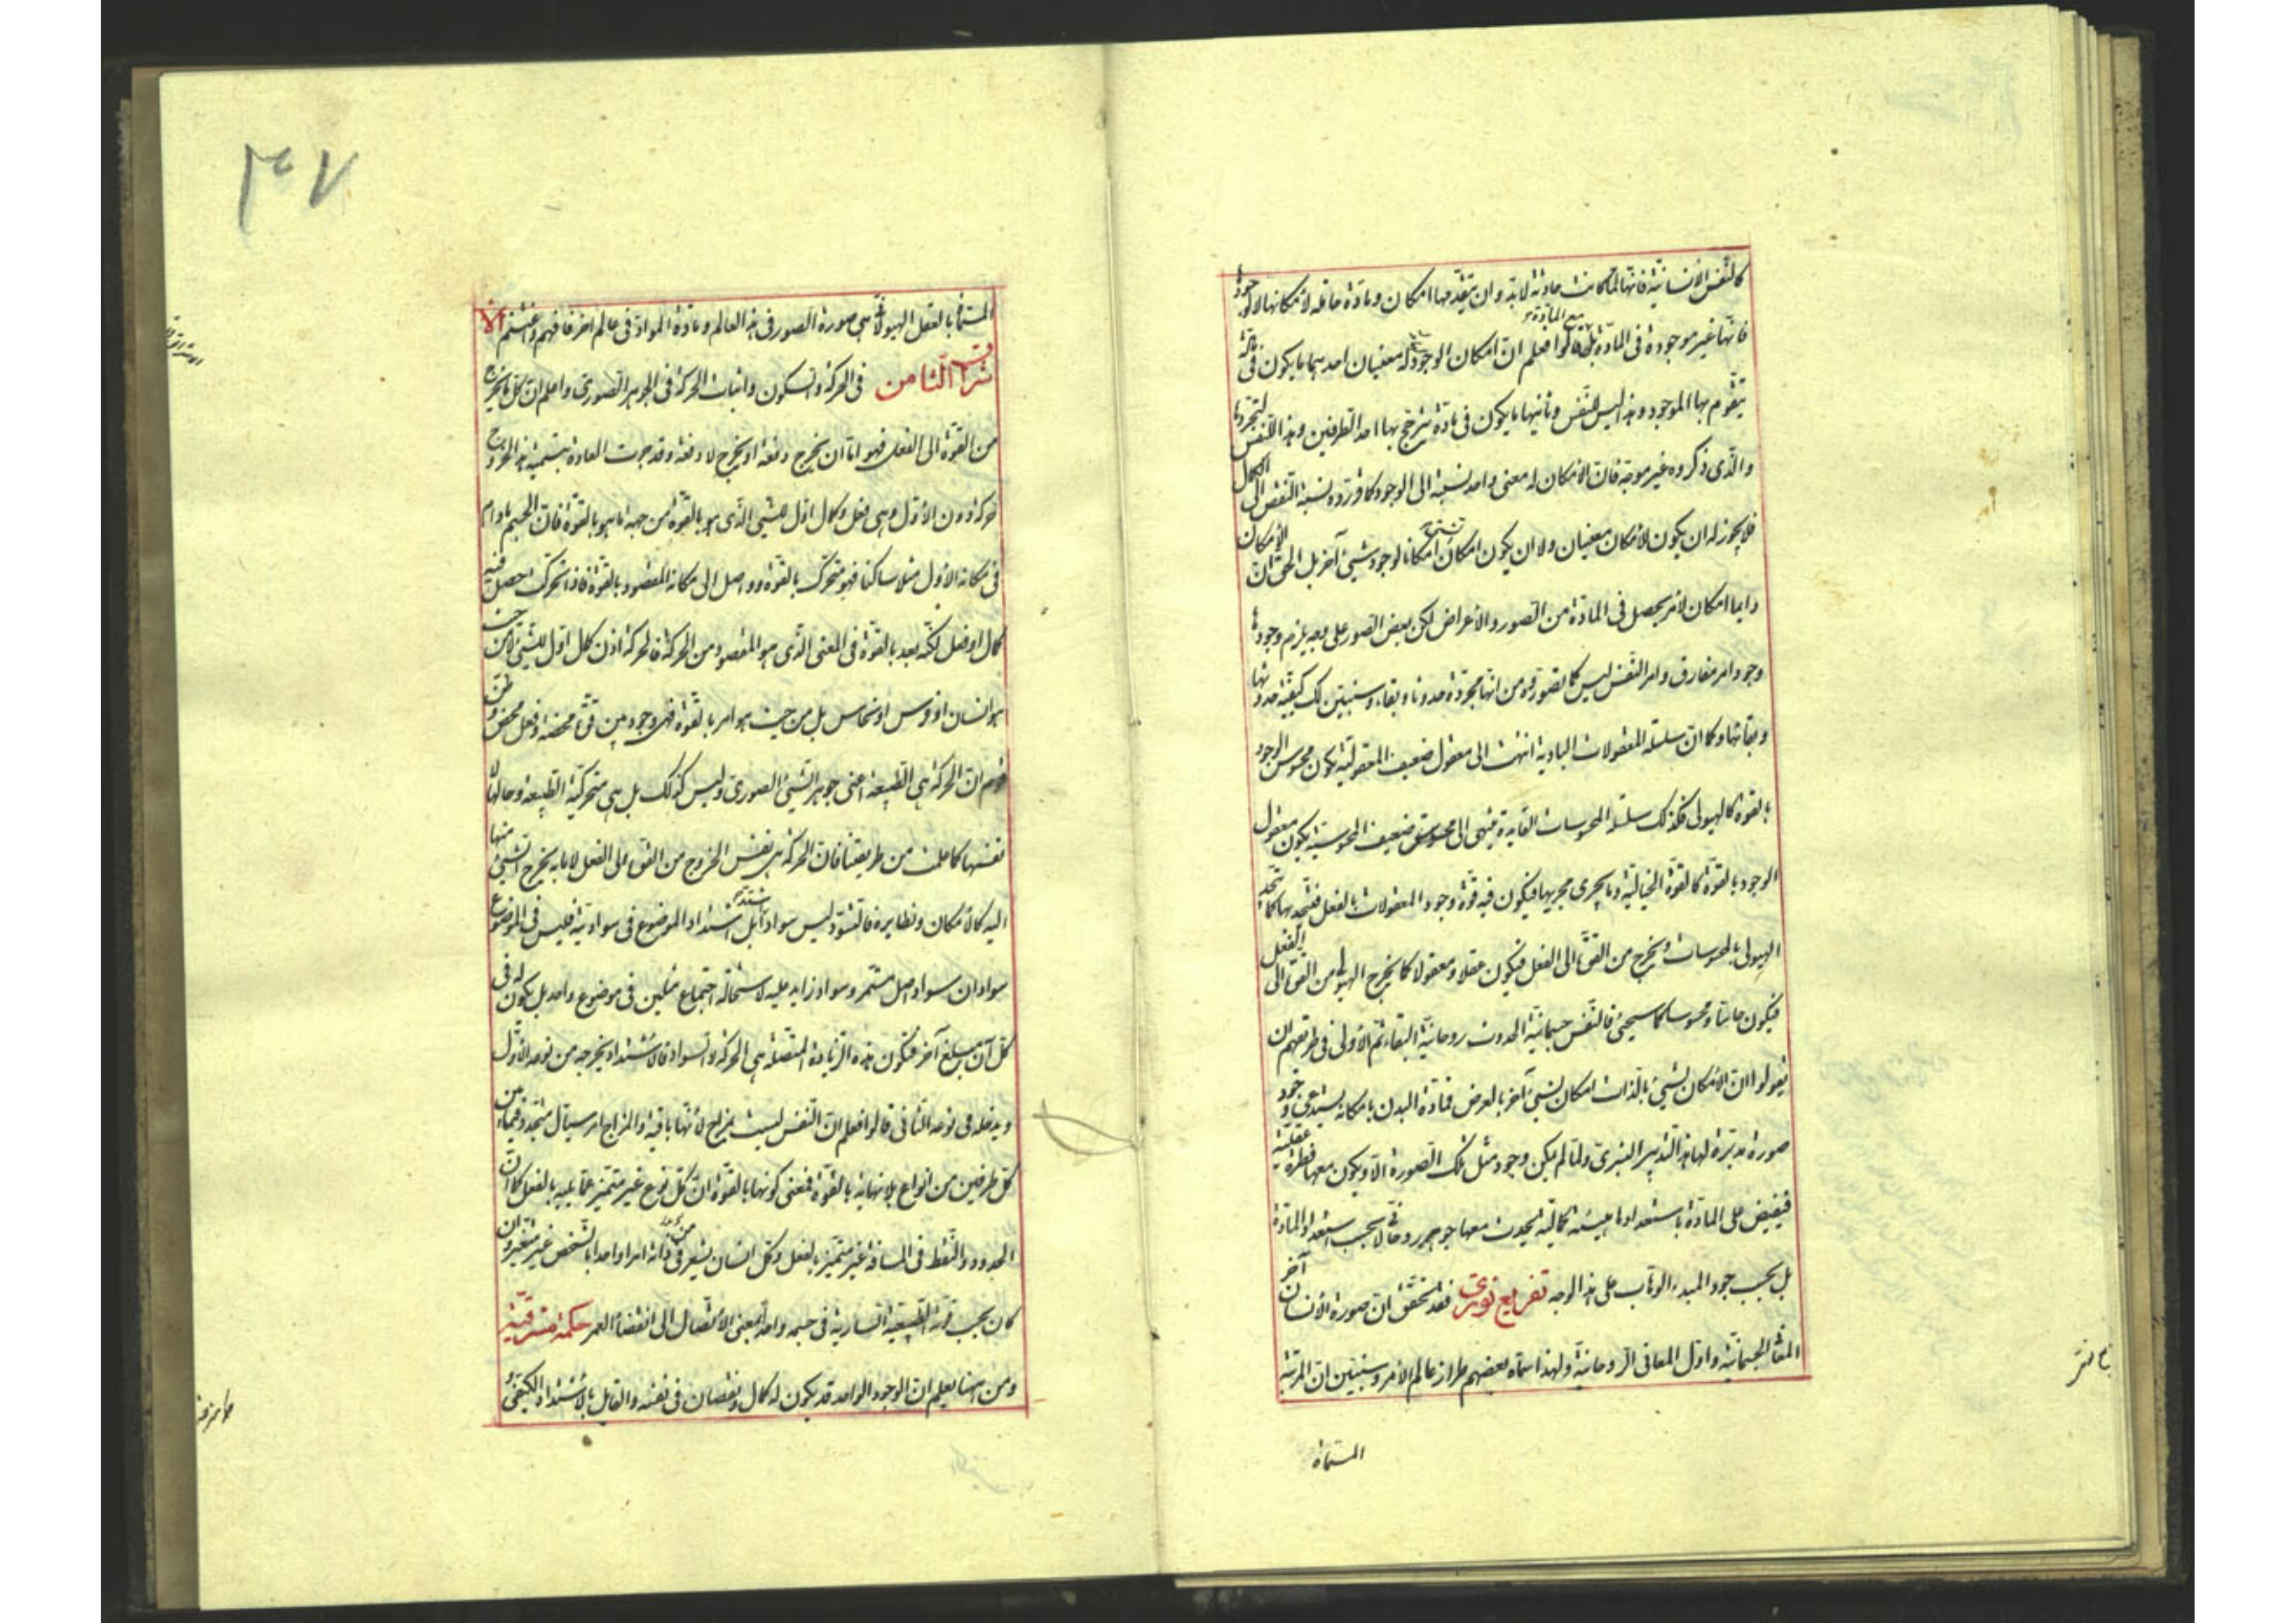 كالنفس الانسانية فانها لما كانت حادثة لابد وان يتقدمها امكان ومادة حاملة لامكانها لا لوجودها
فانها غير موجودة فى المادة بل مع المادة قالوا فعلم ان امكان الوجود له معنيان احدهما ما يكون فى مادة
يتقوم بها الموجود وهذا ليس للنفس وثانيها ما يكون فى مادة يترجح بها احد الطرفين وهذا للنفس لتجردها
والذى ذكروه غير موجه فان الامكان له معنى واحد نسبته الى الوجود كما قرروه نسبة النقص الى الكمال
فلا يجوز له ان يكون للامكان معنيان ولا ان يكون امكان شىء امكانا لوجود شيئ آخر بل الحق ان الامكان
دايما امكان لامر يحصل فى المادة من الصور والاعراض لكن بعض الصور على وجه يلزم وجودها
وجود امر مفارق وامر النفس ليس كما تصوروه من انها مجردة حدوثا وبقاء وسنبين لك كيفية حدوثها
وبقائها وكما ان سلسلة المعقولات البادية انتهت الى معقول ضعيف المعقولية يكون محسوس الوجود
بالقوة كالهيولى فكذلك سلسلة المحسوسات العايدة ينتهى الى محسوس ضعيف المحسوسية يكون معقول
الوجود بالقوة كالقوة الخيالية وما يجرى مجريها فيكون فيه قوة وجود المعقولات بالفعل فيتحد بها كما يتحد
الهيولى بالمحسوسات ويخرج من القوة الى الفعل فيكون عقلا ومعقولا كما يخرج الهيولى من القوة الى الفعل
فيكون حاسا ومحسوسا كما سيجئ فالنفس جسمانية الحدوث روحانية البقاء ثم الاولى فى طريقتهم ان
يقولوا ان الامكان لشيئ بالذات امكان لشيئ آخر بالعرض فمادة البدن بامكانه يستدعى وجود
صورة مدبرة لها هذا التدبير البشرى ولما لم يكن وجود مثل تلك الصورة الا ويكون معها فطرة عقلية
فيفيض على المادة باستعدادها هيئة كمالية يحدث معها جوهر روحانى لا بحسب استعداد المادة
بل بحسب جود المبدء الوهاب على هذا الوجه تفريع نورى فقد تحقق ان صورة الانسان آخر
المعانى الجسمانية واول المعانى الروحانية ولهذا سماه بعضهم طراز عالم الامر وسنبين ان المرتبة
المسماة
٣٠٧
المسماة بالعقل الهيولانى هى صورة الصور فى هذا العالم ومادة المواد فى عالم آخر فافهم واغتنم الا
شراق الثامن فى الحركة والسكون واثبات الحركة فى الجوهر الصورى واعلم ان كل ما يخرج
من القوة الى الفعل فهو اما ان يخرج دفعة او يخرج لا دفعة وقد جرت العادة بتسمية هذا الخروج
حركة دون الاول وهى فعل وكمال اول للشيئ الذى هو بالقوة من جهة ما هو بالقوة فان الجسم مادام
فى مكانه الاول مثلا ساكنا فهو متحرك بالقوة وواصل الى مكانه المقصود بالقوة فاذا تحرك حصل فيه
كمال او فعل لكنه بعد بالقوة فى المعنى الذى هو المقصود من الحركة فالحركة اذن كمال اول للشيئ لا من حيث
هو انسان او فرس او نحاس بل من حيث هو امر بالقوة فهى وجود بين قوة محضة وفعل محض وظن
قوم ان الحركة هى الطبيعة اعنى جوهر الشيئ الصورى وليس كذلك بل هى متحركية الطبيعة وحالها لا
نفسها كما علمت من طريقتنا فان الحركة هى نفس الخروج من القوة الى الفعل لا ما به يخرج الشيئ منها
اليه كالامكان ونظايره فالتسود ليس سوادا يشتد بل اشتداد الموضوع فى سواديته فليس فى الموضوع
سوادان سواد اصل مستمر وسواد زايد عليه لاستحالة اجتماع مثلين فى موضوع واحد بل يكون له فى
كل آن مبلغ آخر فيكون هذه الزيادة المتصلة هى الحركة والسواد فالاشتداد يخرجه من نوعه الاول
ويدخله فى نوعه الثانى قالوا فعلم ان النفس ليست بمزاج لانها باقية والمزاج امر سيال متجدد فيما بين
كل طرفين من انواع بلا نهاية بالقوة فمعنى كونها بالقوة ان كل نوع غير متميز عما يليه بالفعل كما ان
الحدود والنقط فى المسافة غير متميز بالفعل وكل انسان يشعر من ذاته امرا واحدا بالشخص غير متغير وان
كان بحسب قوته الطبيعية السارية فى جسمه واحد بمعنى الاتصال الى انقضاء العمر حكمة مشرقية
ومن ههنا يعلم ان الوجود الواحد قد يكون له كمال ونقصان فى نفسه والقايل بالاشتداد الكيفى